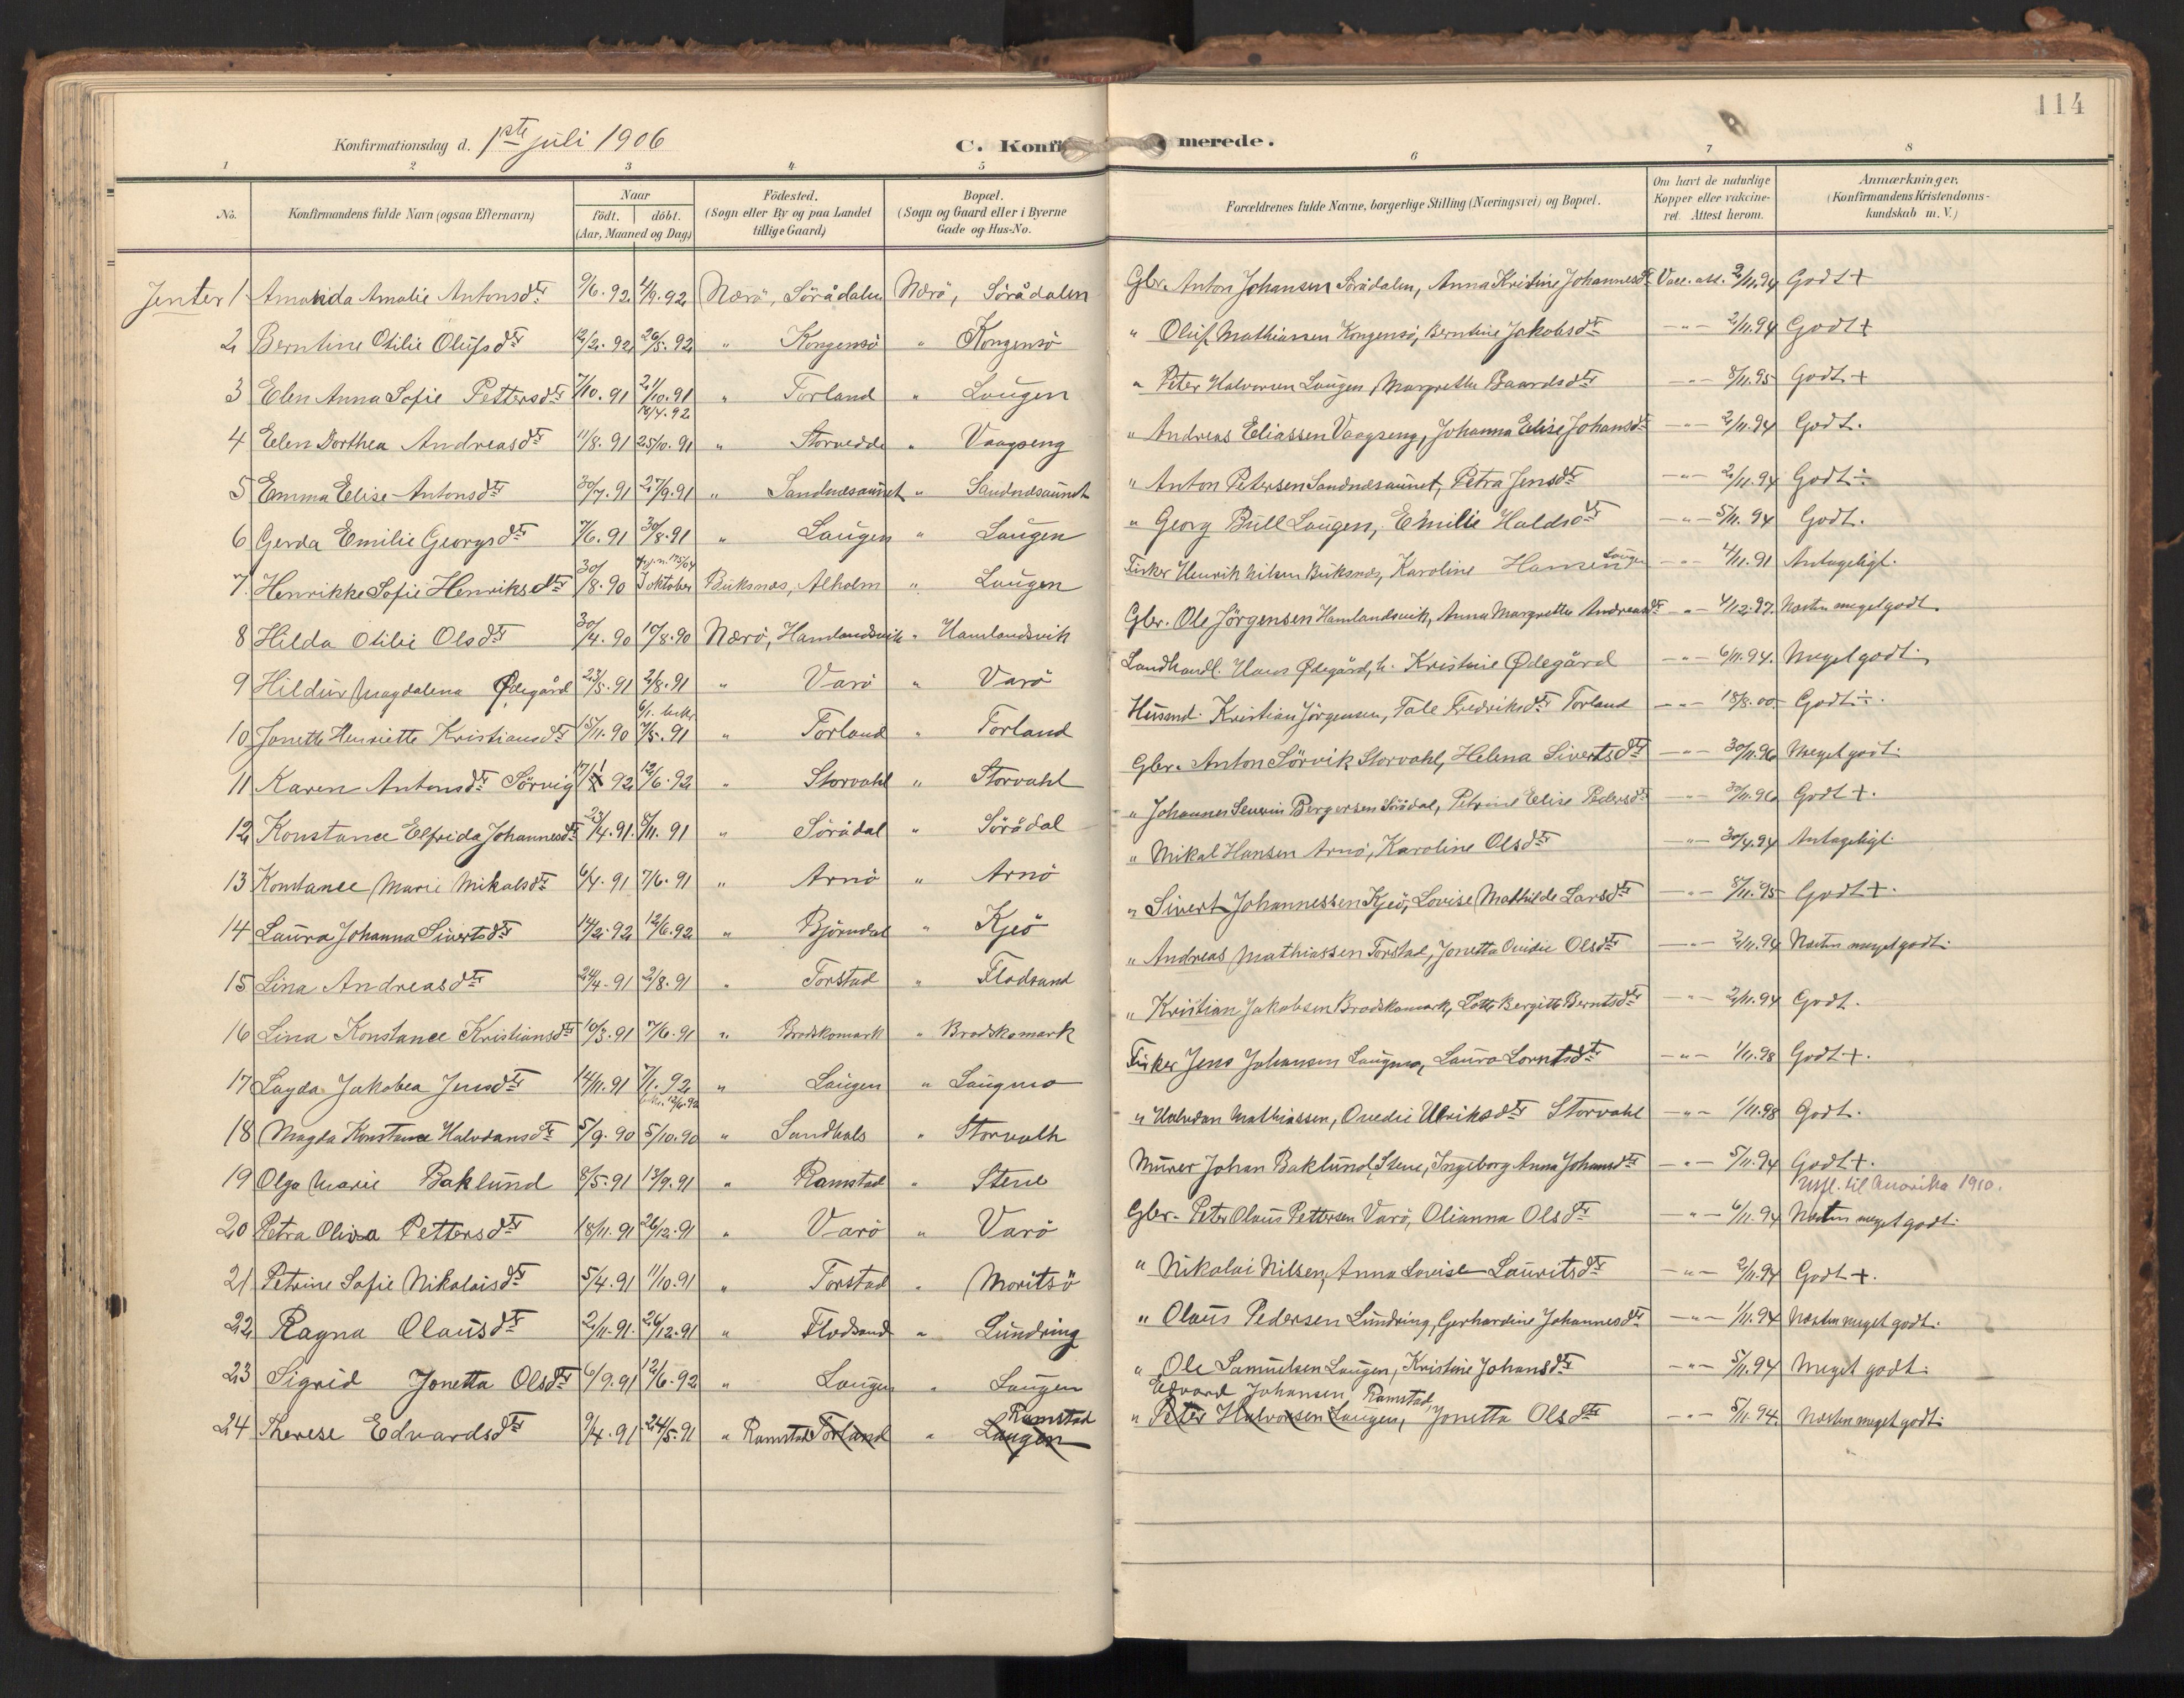 114
Konfirmationsdag d. 1ste juli 1906
C. Konfirmerede.
1 2 3 4 5 6 7 8
No. Konfirmandens fulde Navn (ogsaa Efternavn) Naar födt. döbt. (Aar, Maaned og Dag) Födested. (Sogn eller By og paa Landet tillige Gaard) Bopæl. (Sogn og Gaard eller i Byerne Gade og Hus-No. Forældrenes fulde Navne, borgerlige Stilling (Næringsvei) og Bopæl. Om havt de naturlige Kopper eller vakcineret. Attest herom. Anmærkninger. (Konfirmandens Kristendomskundskab m. V.)
Jenter 1 Amanda Amalie Antonsdtr 9/6.92 4/9.92 Nærö, Sörådalen Nærö, Sörådalen Gbr. Anton Johansen Sörådalen, Anna Kristine Johannesdtr Vacc. att. 2/11.94 Godt +
2 Berntine Otilie Olufsdtr 12/2.92 26/5.92 " Kongensö " Kongensö " Oluf Mathiassen Kongensö, Berntine Jakobsdtr -"- 2/11.94 Godt +
3 Elen Anna Sofie Pettersdtr 7/10.91 21/10.91 " Torland " Laugen " Peter Halvorsen Laugen, Margrethe Baardsdtr -"- 8/11.95 Godt +
4 Elen Dorthea Andreasdtr 11/8.91 25/10.91 " Storvedde " Vaagseng " Andreas Eliassen Vaagseng, Johanna Elise Johansdtr -"- 2/11.94 Godt.
5 Emma Elise Antonsdtr 30/7.91 27/9.91 " Sandnæsaunet " Sandnæsaunet " Anton Petersen Sandnæsaunet, Petra Jensdtr -"- 2/11.94 Godt ÷
6 Gerda Emilie Georgsdtr 7/6.91 30/8.91 " Laugen " Laugen " Georg Bull Laugen, Emilie Haldsdtr -"- 5/11.94 Godt.
7. Henrikke Sofie Henriksdtr 30/8.90 3 oktober Buksnæs, Alholm " Laugen Fisker Henrik Nilsen Buksnæs, Karoline Hansen Laugen -"- 4/11.91 Antageligt.
8 Hilda Otilie Olsdtr 30/4.90 10/8.90 Nærö, Hamlandsvik " Hamlandsvik Gbr. Ole Jörgensen Hamlandsvik, Anna Margrethe Andreasdtr -"- 4/12.97. Næsten meget godt.
9 Hildur Magdalena Ødegård 23/5.91 2/8.91 " Varö " Varö Landhandl. Hans Ødegård, h. Kristine Ødegård -"- 6/11.94. Meget godt.
10 Jonette Henriette Kristiansdtr 15/11.90 7/5.91 " Torland " Torland Husmd. Kristian Jörgensen, Tale Fredriksdtr Torland -"- 18/8.00. Godt ÷.
11 Karen Antonsdtr Sörvig 17/1 92 12/6.92 " Storvahl " Storvahl Gbr. Anton Sörvik Storvahl, Helena Sivertsdtr -"- 30/11.96 Meget godt.
12 Konstance Elfrida Johannesdtr 23/4.91. 8/11.91 " Sörådal " Sörådal " Johannes Severin Bergersen Sörådal, Petrine Elise Pedersdtr -"- 30/11.96 Godt +.
13 Konstance Marie Mikalsdtr 6/4.91 7/6.91 " Arnö " Arnö " Mikal Hansen Arnö, Karoline Olsdtr -"- 30/4.94 Antageligt.
14 Laura Johanna Sivertsdtr 14/2.92 12/6.92 " Björndal " Kjeö " Sivert Johannessen Kjeö, Lovise Mathilde Larsdtr -"- 8/11.95 Godt +.
15 Lina Andreasdtr 24/4.91 2/8.91 " Torstad " Flodsund " Andreas Mathiassen Torstad, Jonetta Ovidie Olsdtr -"- 2/11.94 Næsten meget godt.
16 Lina Konstance Kristiansdtr 10/3.91 7/6.91 " Brodskomark " Brodskomark " Kristian Jakobsen Brodskomark, Lotte Bergitte Berntsdtr -"- 2/11.94 Godt.
17 Layda Jakobea Jensdtr 14/11.91 7/1.92 " Laugen " Laugmo Fisker Jens Johansen Laugmo, Laura Lorntsdtr -"- 1/11.98 Godt +.
18 Magda Konstance Halvdansdtr 5/9.90 5/10.90 " Sandhals " Storvalh " Halvdan Mathiassen, Ovedie Ulriksdtr Storvahl -"- 1/11.98 Godt.
19 Olga Marie Baklund 8/5.91 13/9.91 " Ramstad " Stene Murer Johan Baklund, Stene, Ingeborg Anna Johansdtr -"- 5/11.94 Godt +.
Utfl. til Amerika 1910.
20 Petra Oliva Pettersdtr 18/11.91 26/12.91 " Varö " Varö Gbr. Peter Olaus Pettersen Varö, Olianna Olsdtr -"- 6/11.94 Næsten meget godt.
21 Petrine Sofie Nikolaisdtr 5/4.91 11/10.91 " Torstad " Moritsö " Nikolai Nilsen, Anna Lovise Lauritsdtr -"- 2/11.94 Godt +.
22 Ragna Olausdtr 2/11.91. 26/12.91 " Flodsand " Lundring " Olaus Pedersen Lundring, Gerhardine Johannesdtr -"- 1/11.94 Næsten meget godt.
23 Sigrid Jonetta Olsdtr 6/9.91 12/6.92 " Laugen " Laugen " Ole Samuelsen Laugen, Kristine Johansdtr -"- 5/11.94 Meget godt.
Ramstad Edvard Johansen Ramstad,
24 Therese Edvardsdtr 9/4.91 24/5.91 " Ramstad Torland " Laugen " Peter Halvorsen Laugen, Jonetta Olsdtr -"- 5/11.94. Næsten meget godt.